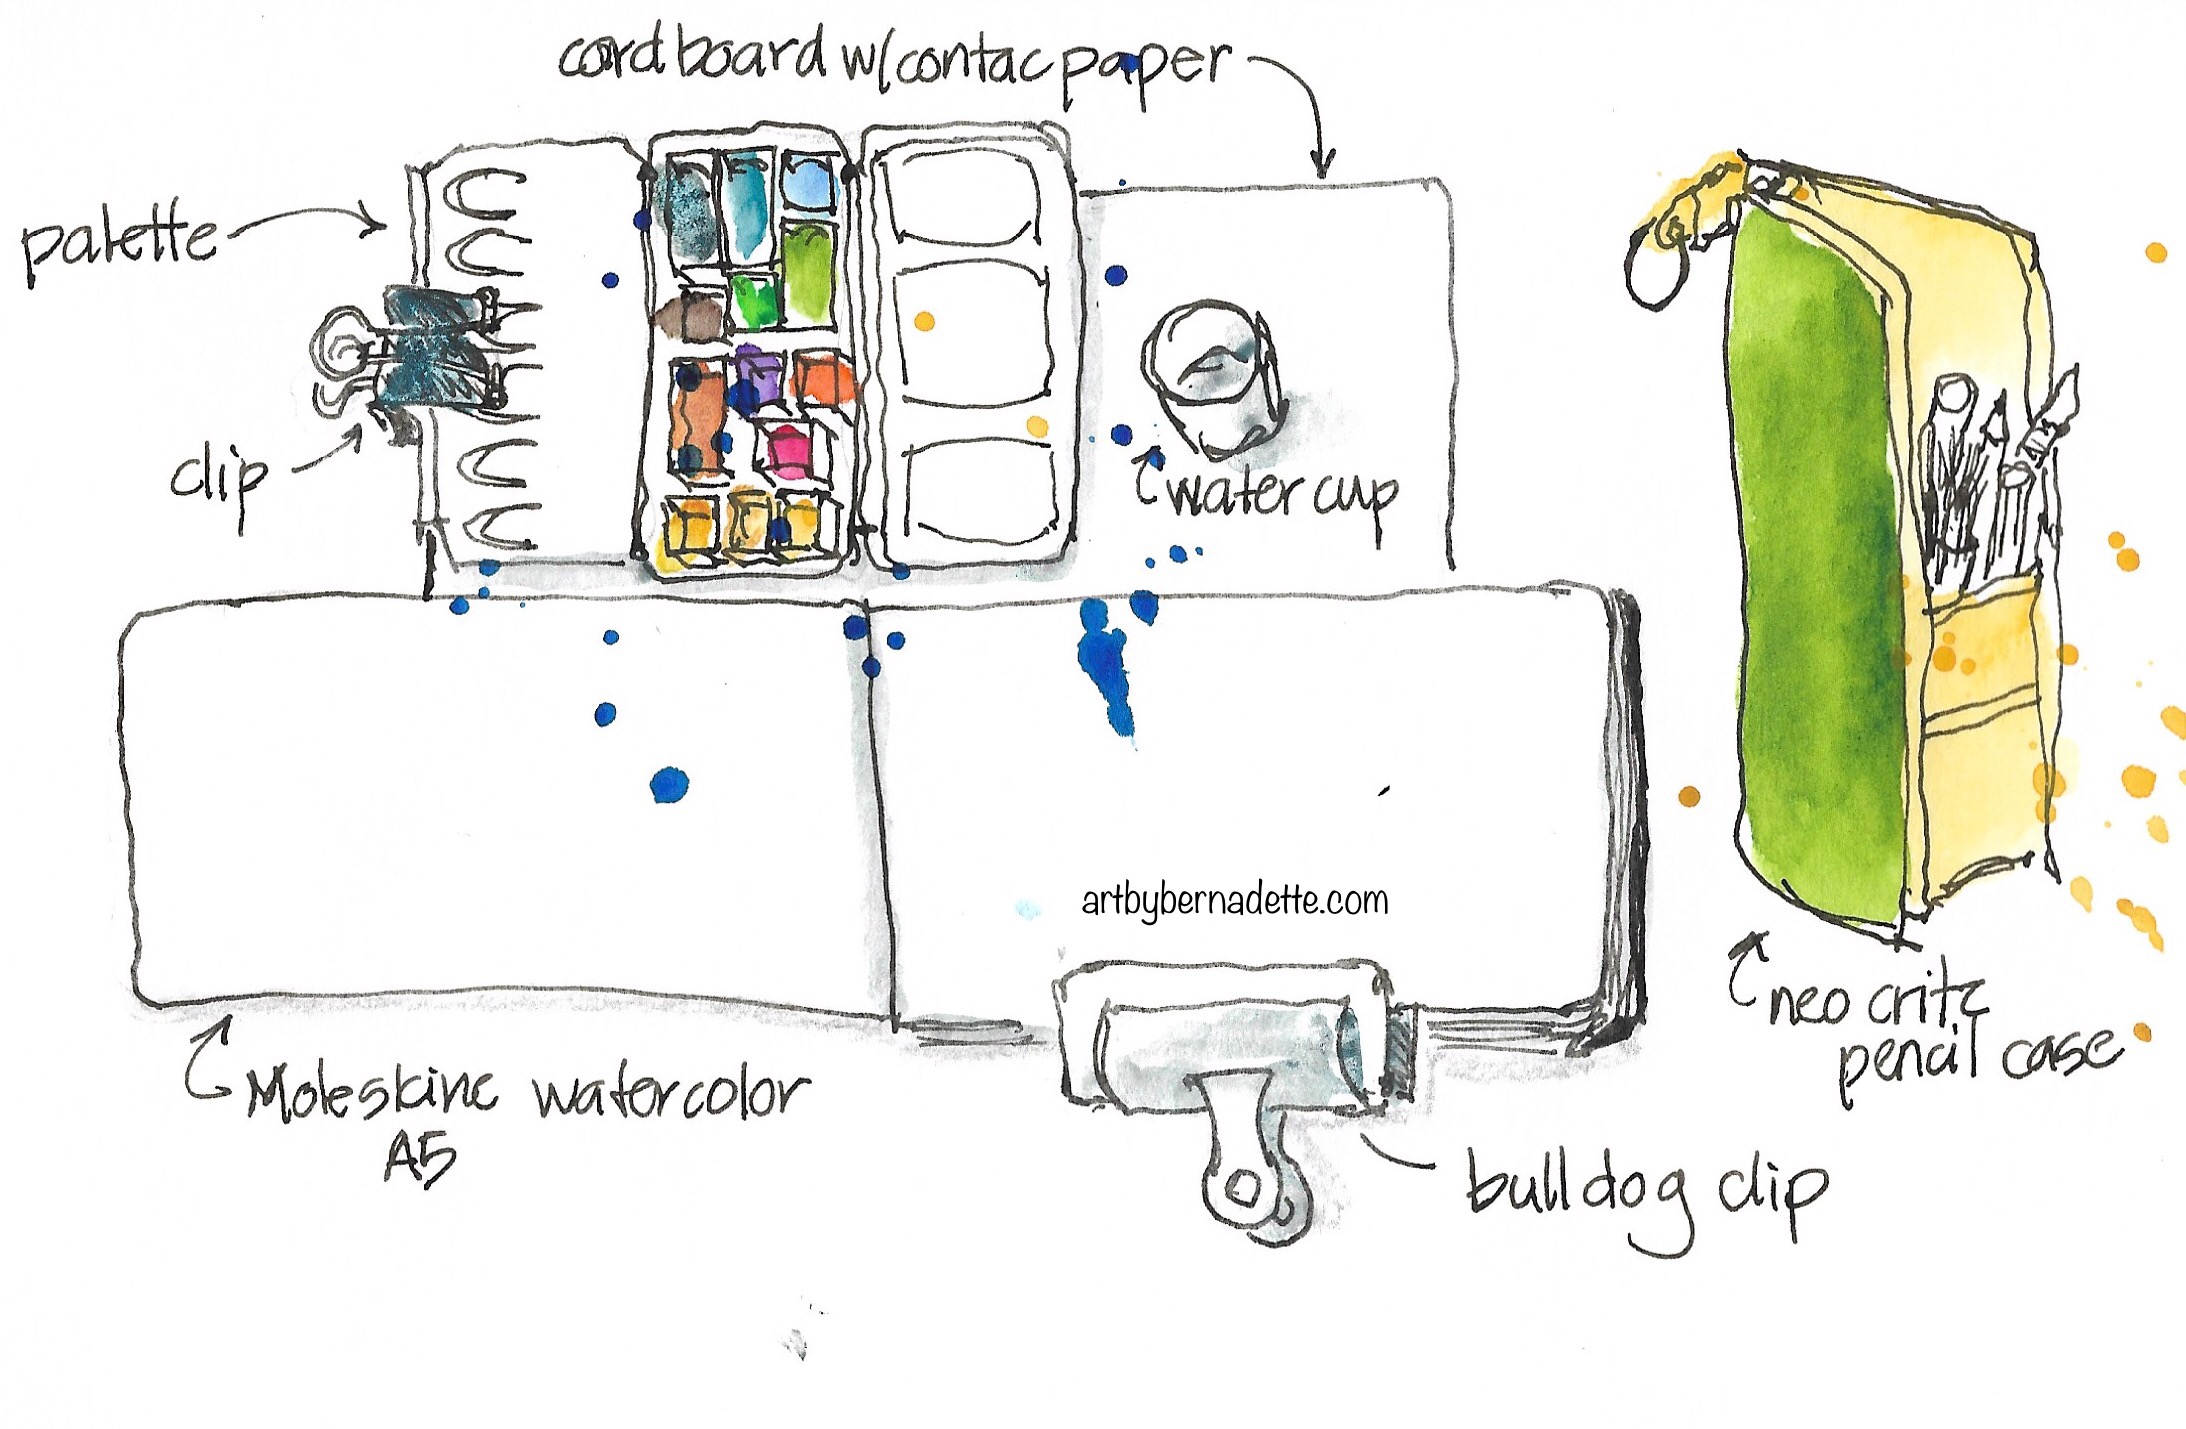 cardboard w/contac paper
palette
clip
water cup
artbybernadette.com
neo critz
pencil case
Moleskine watercolor
A5
bulldog clip